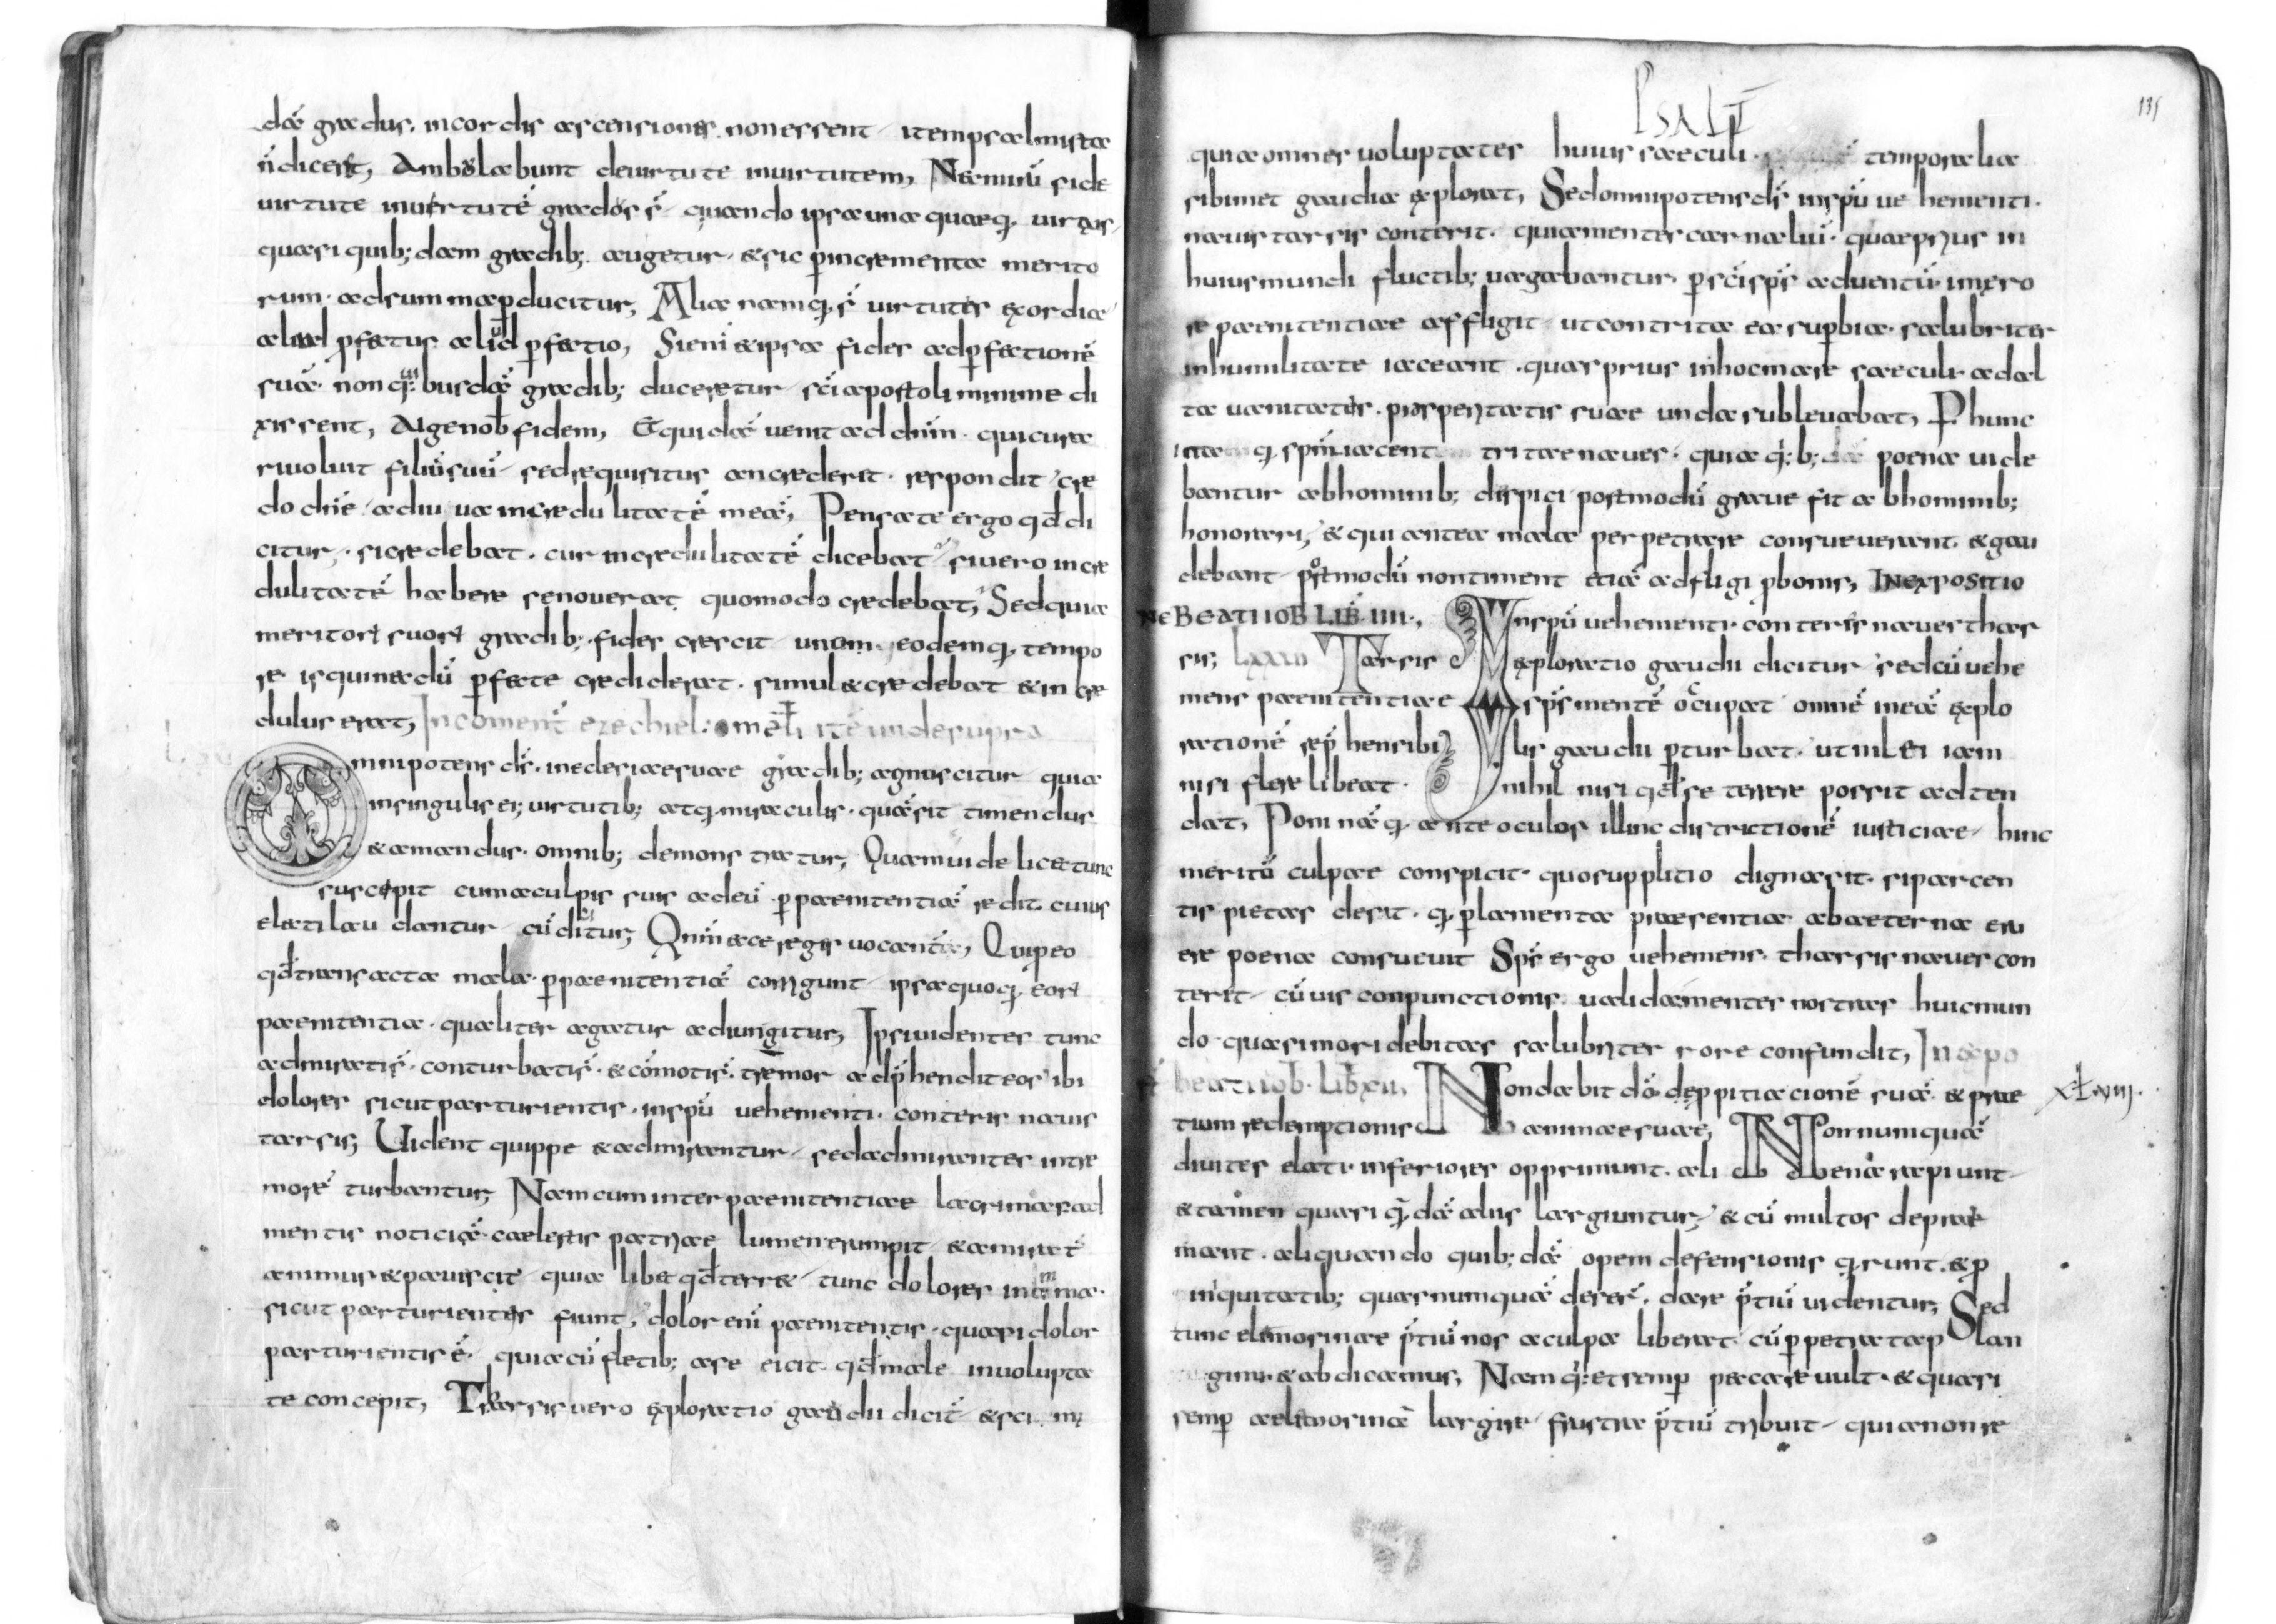 dā gradus. incordis ascensiones. nonessent itempsalmista
n̄ dicer&, Ambulabunt deuirtute inuirtutem, Namirū side
uirtute inuirtutē grados s̄ quando ipsa una quaeq; uirtus
quasi quib;dam gradib; augetur &sic pincrementa merito
rum adsumma pducitur, Aliae namq; s̄ uirtutis exordia
aliud pfectus aliud pfectio, Sieni &ipsa fides adpfectionē
suā non q;busdā gradib; duceretur sc̄i apostoli minime di
xissent, Augenob̄ fidem, Etquidā uenit addnm̄ quicura
riuoluit filiūsuū sedrequisitus ancrederit. respondit cre
do dn̄e adiuua incredulitatē meā, Pensate ergo qd̄ di
citur, sicredebat. cur incredulitatē dicebat siuero incre
dulitatē habere senouerat quomodo credebat, Sedquia
meritor suor gradib; fides crescit uno eodemq; tempo
re isquinecdū pfecte crediderat. simul &credebat &incre
dulus erat, Incoment̄ ezechiel: omel̄ itē undesupra
Omnipotens ds̄. inecclesiaesuae gradib; agnoscitur quia
insingulis ei; uirtutib; atq; miraculis. quāsit timendus
& amandus. omnib; demonstratur, Quamuide licet tunc
suscepit cumaculpis suis addeū p paenitentiā redit cuius
elati laudantur cū dicitur, Qm̄ ecce reges uocantur, Quipeo
qd̄ transacta mala. ppaenitentiā corrigunt ipsaquoq; eor
paenitentia. qualiter agatur adiungitur, Ipsiuidentes tunc
admirati s̄. conturbati s̄. &cōmoti s̄. tremor adp̄hendit eos ibi
dolores sicut parturientis. inspū uehementi. conteris nauis
tarsis, Uident quippe &admirantur sedadmirantes intre
more turbantur, Nam cum inter paenitentiae lacrimas ad
mentis noticiā caelestis patriae lumen erumpit &amirat̄
animus &pauiscit quia libet qd̄ terret tunc dolores
sicut parturientis fiunt, dolor eni paenitentis. quasi dolor
parturientis ē. quiacū fletib; ase eicit qd̄ male inuolupta
te concepit, Tharsis uero exploratio gaudii dicit̄
Psalt
135
quiaomnes uoluptates huius saeculi. temporalia
sibimet gaudia explorat, Sedomnipotens ds̄ inspū uehementi.
nauistarsis conterit. quiamentes carnaliū. quaeprius in
huiusmundi fluctib; uagabantur psc̄isps̄ aduentū. immero
re paenitentiae affligit utcontrita ea superbiae. salubriter
inhumilitate iaceant. quasprius inhocmare saeculi adal
ta uanitatis. prosperitatis suae unda subleuabat, Phunc
tritaenaues. quiae q;b;dā poena uide
bantur abhominib; dispici postmodū graue fit abhominib;
honorari, & qui antea mala perpetrare consueuerant. & gau
debant postmodū nontiment etiā adfligi pbonis, INEXPOSITIO
NE BEATI IOB LIB. IIII., Inspū uehementi. conteris naues thar
sis, Tarsis exploratio gaudii dicitur sedcū uehe
mens paenitentiae sps̄ mentē occupat omnē ineā explo
rationē rep̄hensibilis gaudii pturbat. ut nil ei iam
nisi flere libeat. nihil nisi qd̄ se terrere possit adten
dat, Poni naq; ante oculos illinc districtionē iusticiae hinc
meritū culpae conspicit. quosupplitio dignasit. siparcen
tis pietas desit. q; plamenta praesentia. abaeterna eru
ere poena consueuit Sps̄ ergo uehemens. tharsis naues con
terit cū uis conpunctionis. ualidamentes nostras huicmun
do quasimari debitas salubriter rore confundit, In expo
beati iob. lib xii. Nondabit dō. deppitiacionē suā. & prae
xl viii.
tium redemptionis animae suae, Nonnumquā
diuites elati inferiores opprimunt. aliena rapiunt
&tamen quasi q;dā aliis largiuntur, & cū multos depri
mant. aliquando quib;dā opem defensionis q;runt. &p
iniquitatib; quasnumquā deser̄. dare p̄tiū uidentur, Sed
tunc elimosinae p̄tiū nos aculpa liberat cū ppetrata plan
gimus &abdicamus, Nam q; et semp peccare uult &quasi
semp aelimosinā largire frustra p̄tiū tribuit quianonre